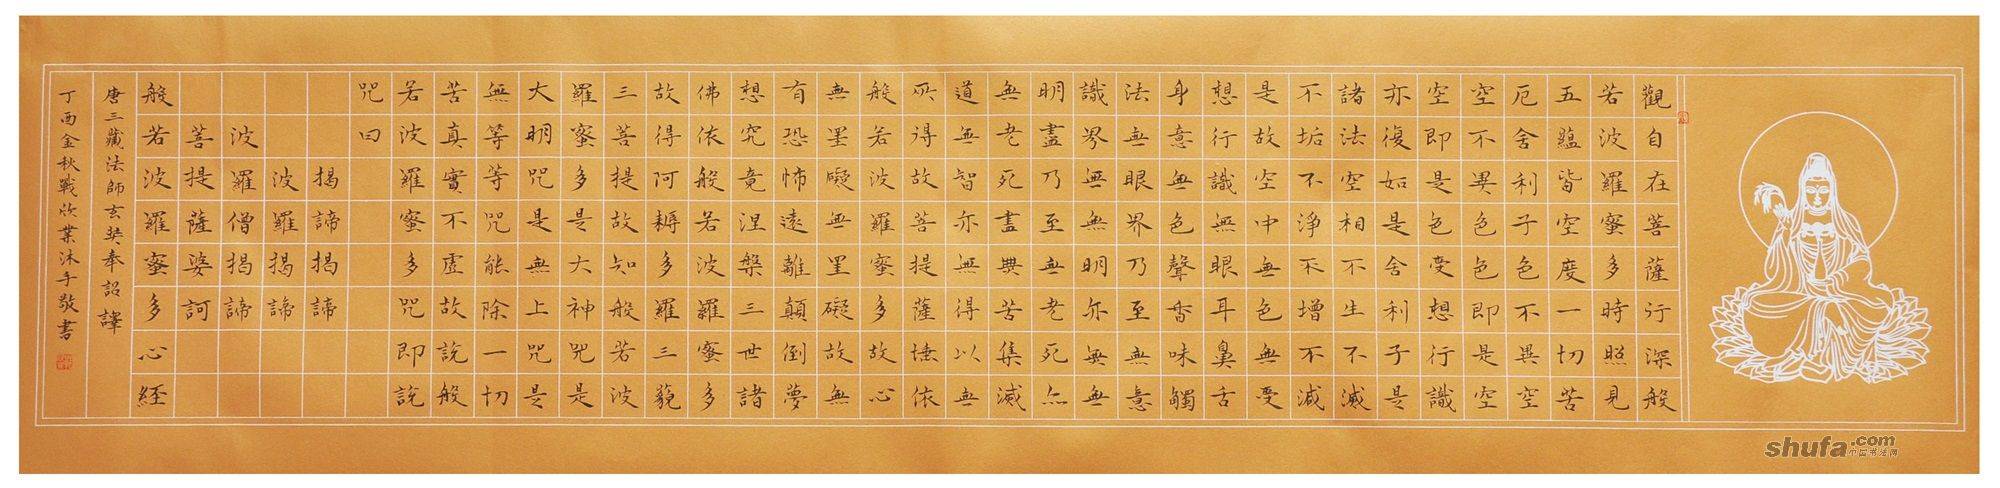 觀自在菩薩行深般
若波羅蜜多時照見
五蘊皆空度一切苦
厄舍利子色不異空
空不異色色即是空
空即是色受想行識
亦復如是舍利子是
諸法空相不生不滅
不垢不淨不增不減
是故空中無色無受
想行識無眼耳鼻舌
身意無色聲香味觸
法無眼界乃至無意
識界無無明亦無無
明盡乃至無老死亦
無老死盡無苦集滅
道無智亦無得以無
所得故菩提薩埵依
般若波羅蜜多故心
無罣礙無罣礙故無
有恐怖遠離顛倒夢
想究竟涅槃三世諸
佛依般若波羅蜜多
故得阿耨多羅三藐
三菩提故知般若波
羅蜜多是大神咒是
大明咒是無上咒是
無等等咒能除一切
苦真實不虛故說般
若波羅蜜多咒即說
咒曰
揭諦揭諦
波羅揭諦
波羅僧揭諦
菩提薩婆訶
般若波羅蜜多心経
唐三藏法師玄奘奉詔譯
丁酉金秋戰欣業沐手敬書
shufa.com
中国书法网